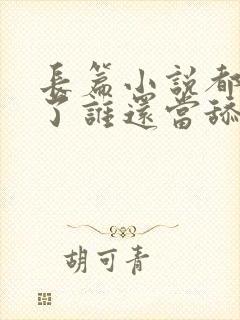 長篇小説都
了誰還當舔
胡可青